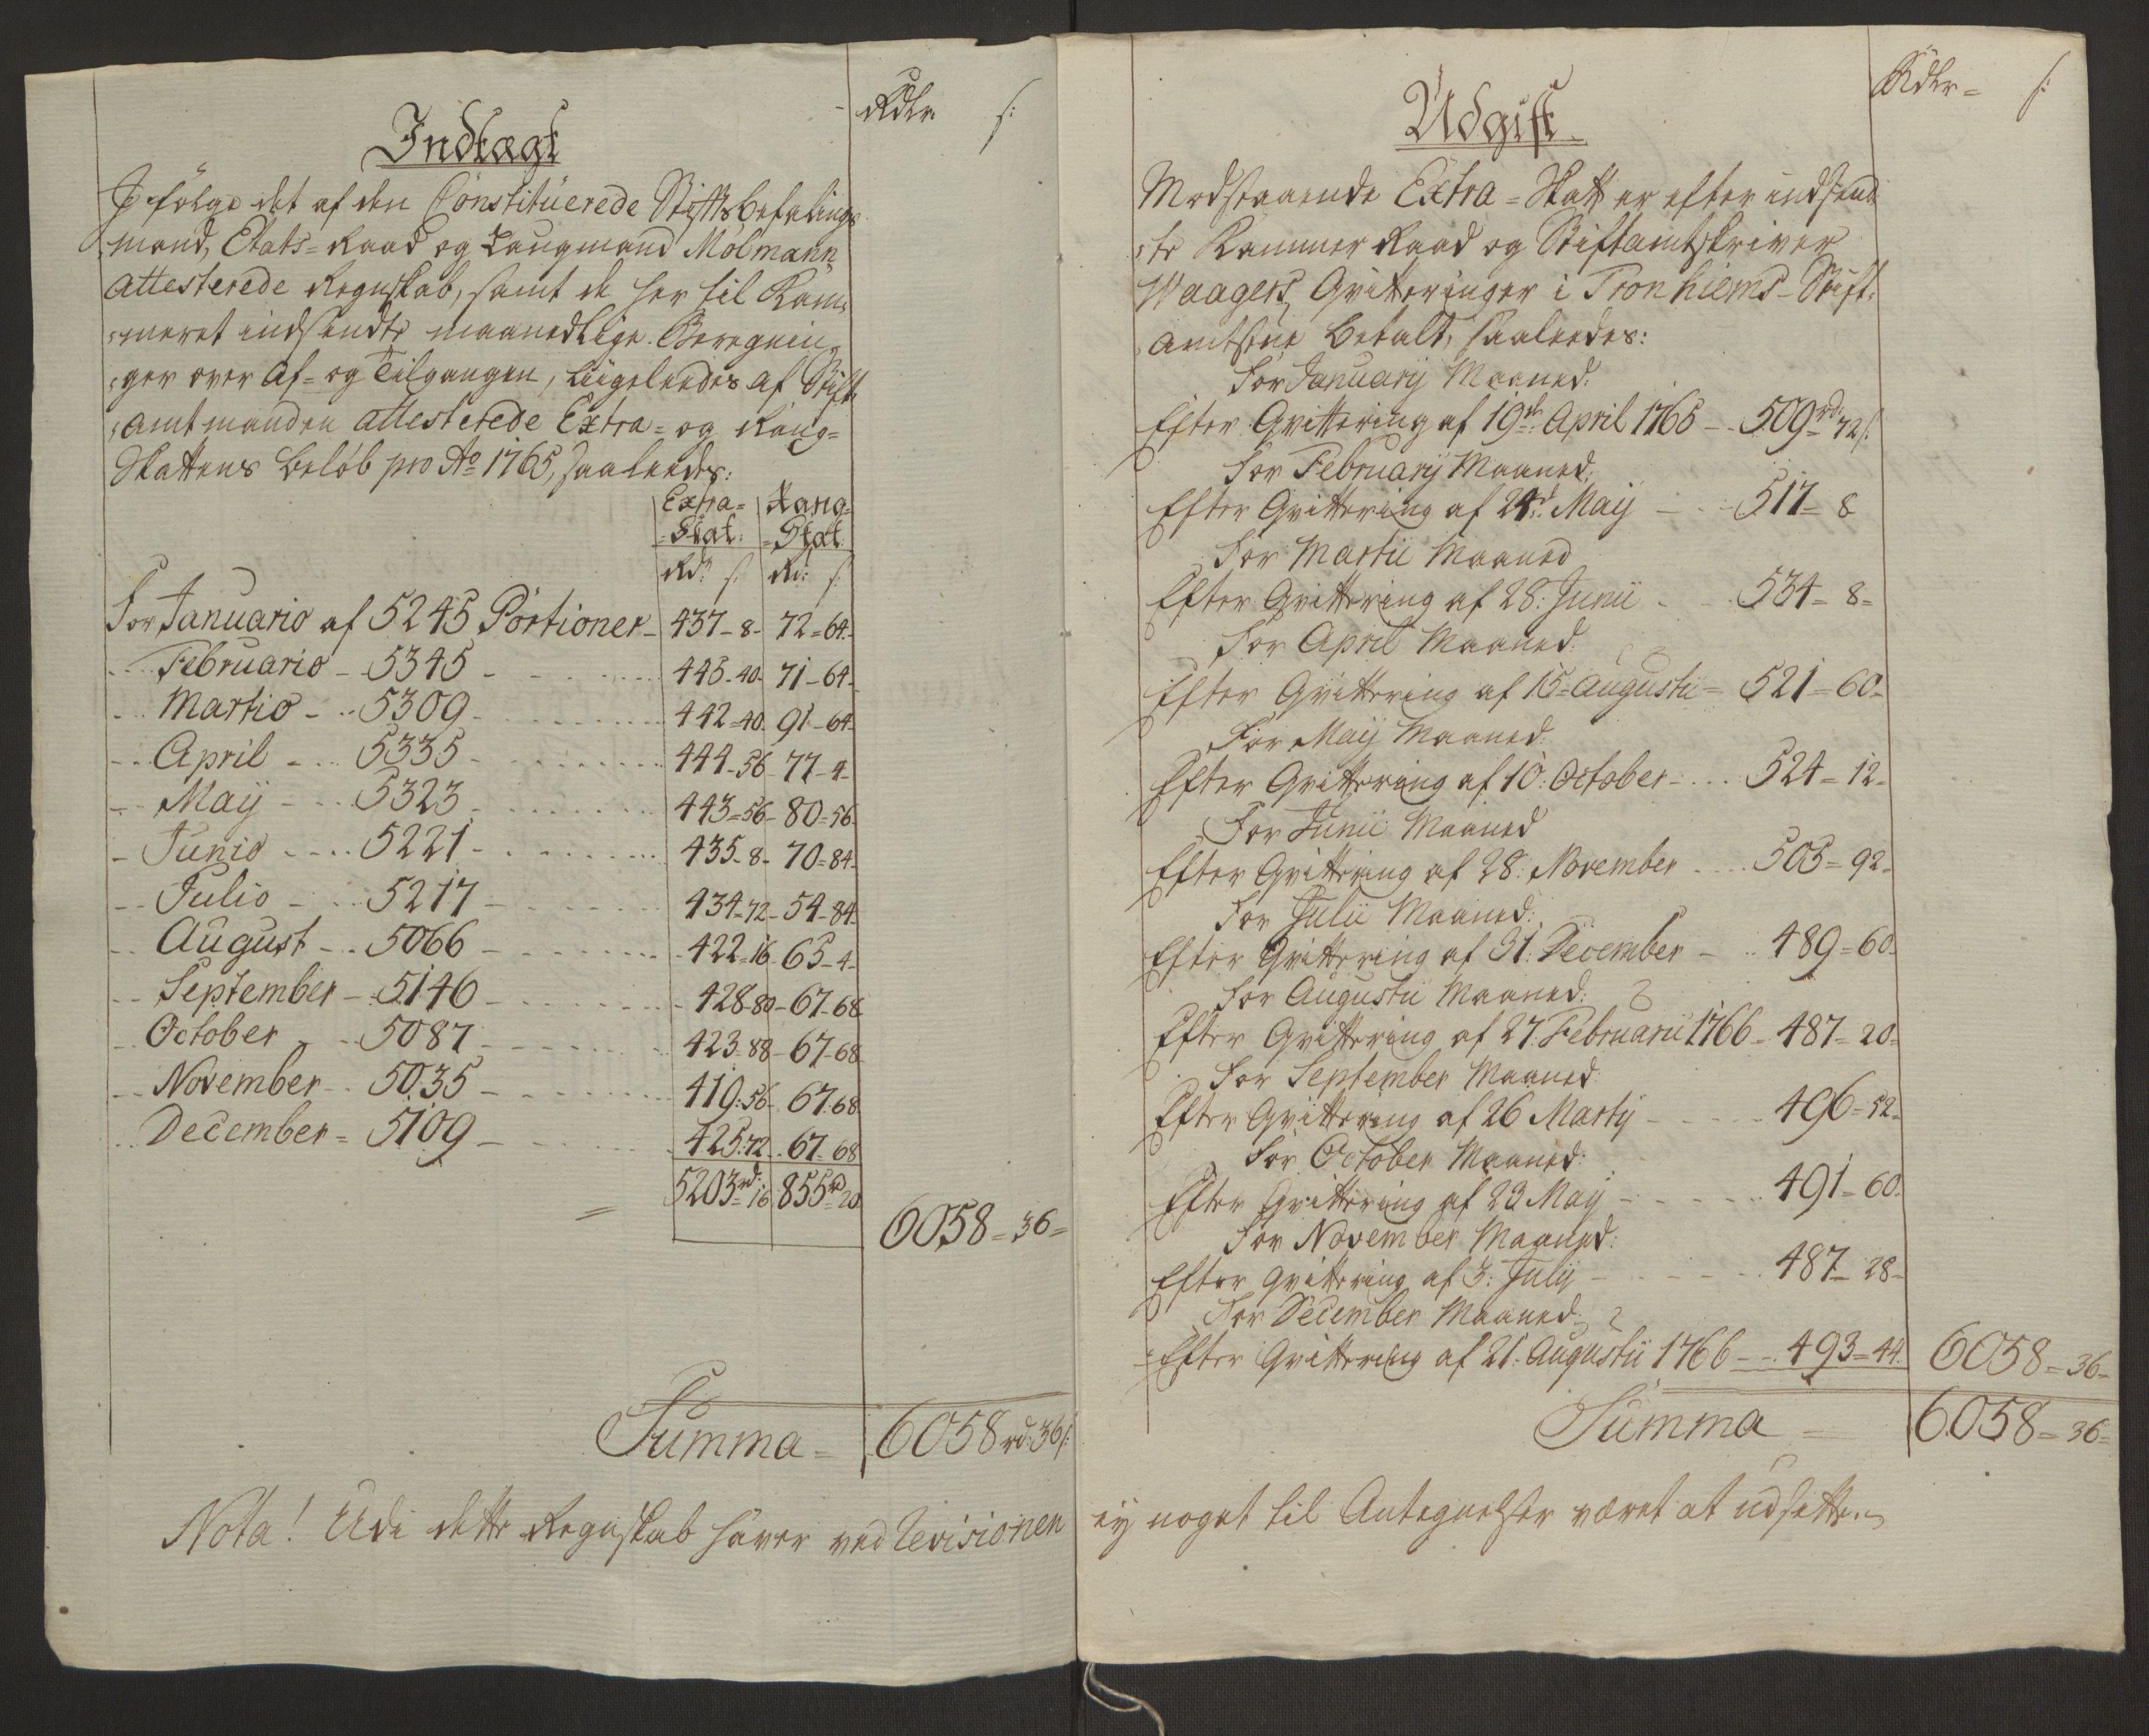 Rdlr ſ:
Indtægt
I følge det af den Constituerede Stiftsbefalings
mand, Etats-Raad og Laugmand Mølmann
attesterede Regnskab, samt de her til Kam-
meret indsendte maanedlige Beregnin-
ger over Af- og Tilgangen, liigeleedes af Stift-
amtmanden attesterede Extra- og Rang-
Skattens beløb pro Ao 1765, saaleedes:
Extra- Rang-
Skat. Skat.
Rd: ſ: Rd: ſ:
For Januario af 5245 Portioner - 437 - 8 - 72 = 64 -
- Februario - 5345 - 445 - 40 - 71 - 64 -
- Martio - 5309 - 442 - 40 - 91 - 64 -
- April - 5335 - 444 - 56 - 77 - 4 -
- Maij - 5323 - 443 = 56 - 80 = 56 -
- Junio - 5221 - 435 - 8 - 70 = 84 -
- Julio - 5217 - 434 - 72 - 54 - 84 -
- August - 5066 - 422 - 16 - 65 - 4 -
- September - 5146 - 428 - 80 - 67 - 68
- October - 5087 - 423 - 88 - 67 - 68
- November - 5035 - 419 : 56 - 67 - 68
- December = 5109 - 425 : 72 - 67 - 68
5203 rd: 16 855 rd 20
6058 = 36 =
Summa = 6058 rd: 36 ſ:
Nota! Udi dette Regnskab haver ved Revisionen
Rdlr = ſ:
Udgift
Modstaaende Extra-Skatt er efter indsend
te Kammer Raad og Stiftamtskriver
Waagers Qvitteringer i Tronhiems-Stift-
amtstue betalt, saaleedes:
For Januarij Maaned:
Efter Qvittering af 19de April 1765 - 509 rd: 72 ſ:
For Februarij Maaned:
Efter Qvittering af 24de Maij - 517 - 8
For Martii Maaned
Efter Qvittering af 28: Junii - 534 - 8 -
For April Maaned:
Efter Qvittering af 15 = Augustii = 521 = 60 -
For Maij Maaned:
Efter Qvittering af 10: October - 524 = 12 -
For Junii Maaned
Efter Qvittering af 28: November - 505 = 92 -
For Julii Maaned:
Efter Qvittering af 31: December - 489 = 60 -
For Augustii Maaned:
Efter Qvittering af 27. Februarii 1766 - 487 - 20 -
For September Maaned:
Efter Qvittering af 26 Martij - 496 = 52 -
For October Maaned:
Efter Qvittering af 23 Maij - 491 = 60 -
For November Maaned:
Efter Qvittering af 3: Julij - 487 - 28 -
For December Maaned:
Efter Qvittering af 21: Augustii 1766 - 493 = 44 6058 = 36 -
Summa = 6058 = 36 =
eij noget til Antegnelser været at udsætte.